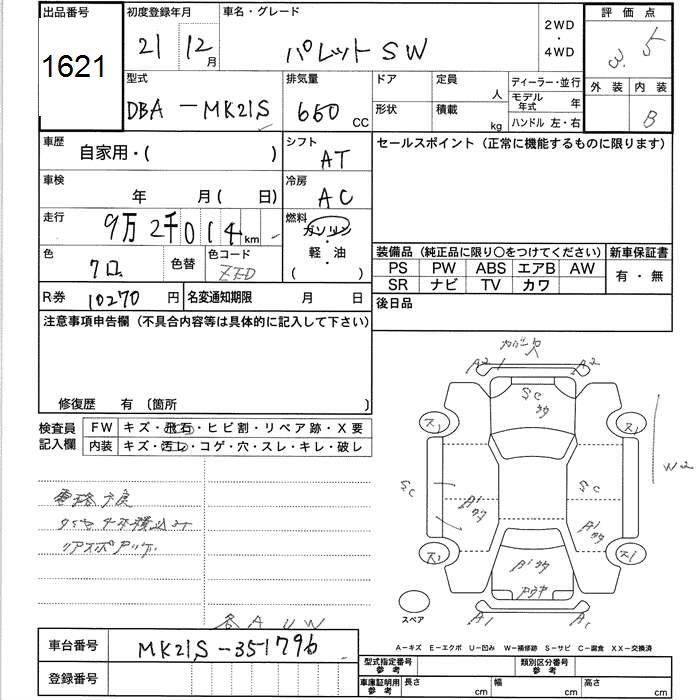 出品番号 初度登録年月 車名・グレード 2WD ・ 4WD 評価点
1621 21 12月 パレットSW 3.5
型式 排気量 ドア 定員 人 ディーラー・並行 外装 内装
DBA-MK21S 660 CC 形状 積載 kg モデル年式 年 B
ハンドル 左・右
車歴 自家用・( ) シフト AT セールスポイント(正常に機能するものに限ります)
車検 年 月( 日) 冷房 AC
走行 9万2千014km 燃料 ガソリン・軽油 ( )
色 クロ 色替 色コード ZJ3
装備品(純正品に限り○をつけてください) 新車保証書
PS PW ABS エアB AW 有・無
SR ナビ TV カワ
R券 10270円 名変通知期限 月 日 後日品
注意事項申告欄(不具合内容等は具体的に記入して下さい)
修復歴 有 〔箇所 〕
検査員記入欄 FW キズ・飛石・ヒビ割・リペア跡・X要
内装 キズ・汚レ・コゲ・穴・スレ・キレ・破レ
カバー欠
A2 1 A2
SC
ス1 ス1
W2
SC SC
A1 A1
ス2 ス1
A1
A1
スペア
各AUW
A-キズ E-エクボ U-凹み W-補修跡 S-サビ C-腐食 XX-交換済
車台番号 MK21S-351796
登録番号
型式指定番号 参考 類別区分番号 参考
車庫証明用 参考 長さ cm 幅 cm 高さ cm